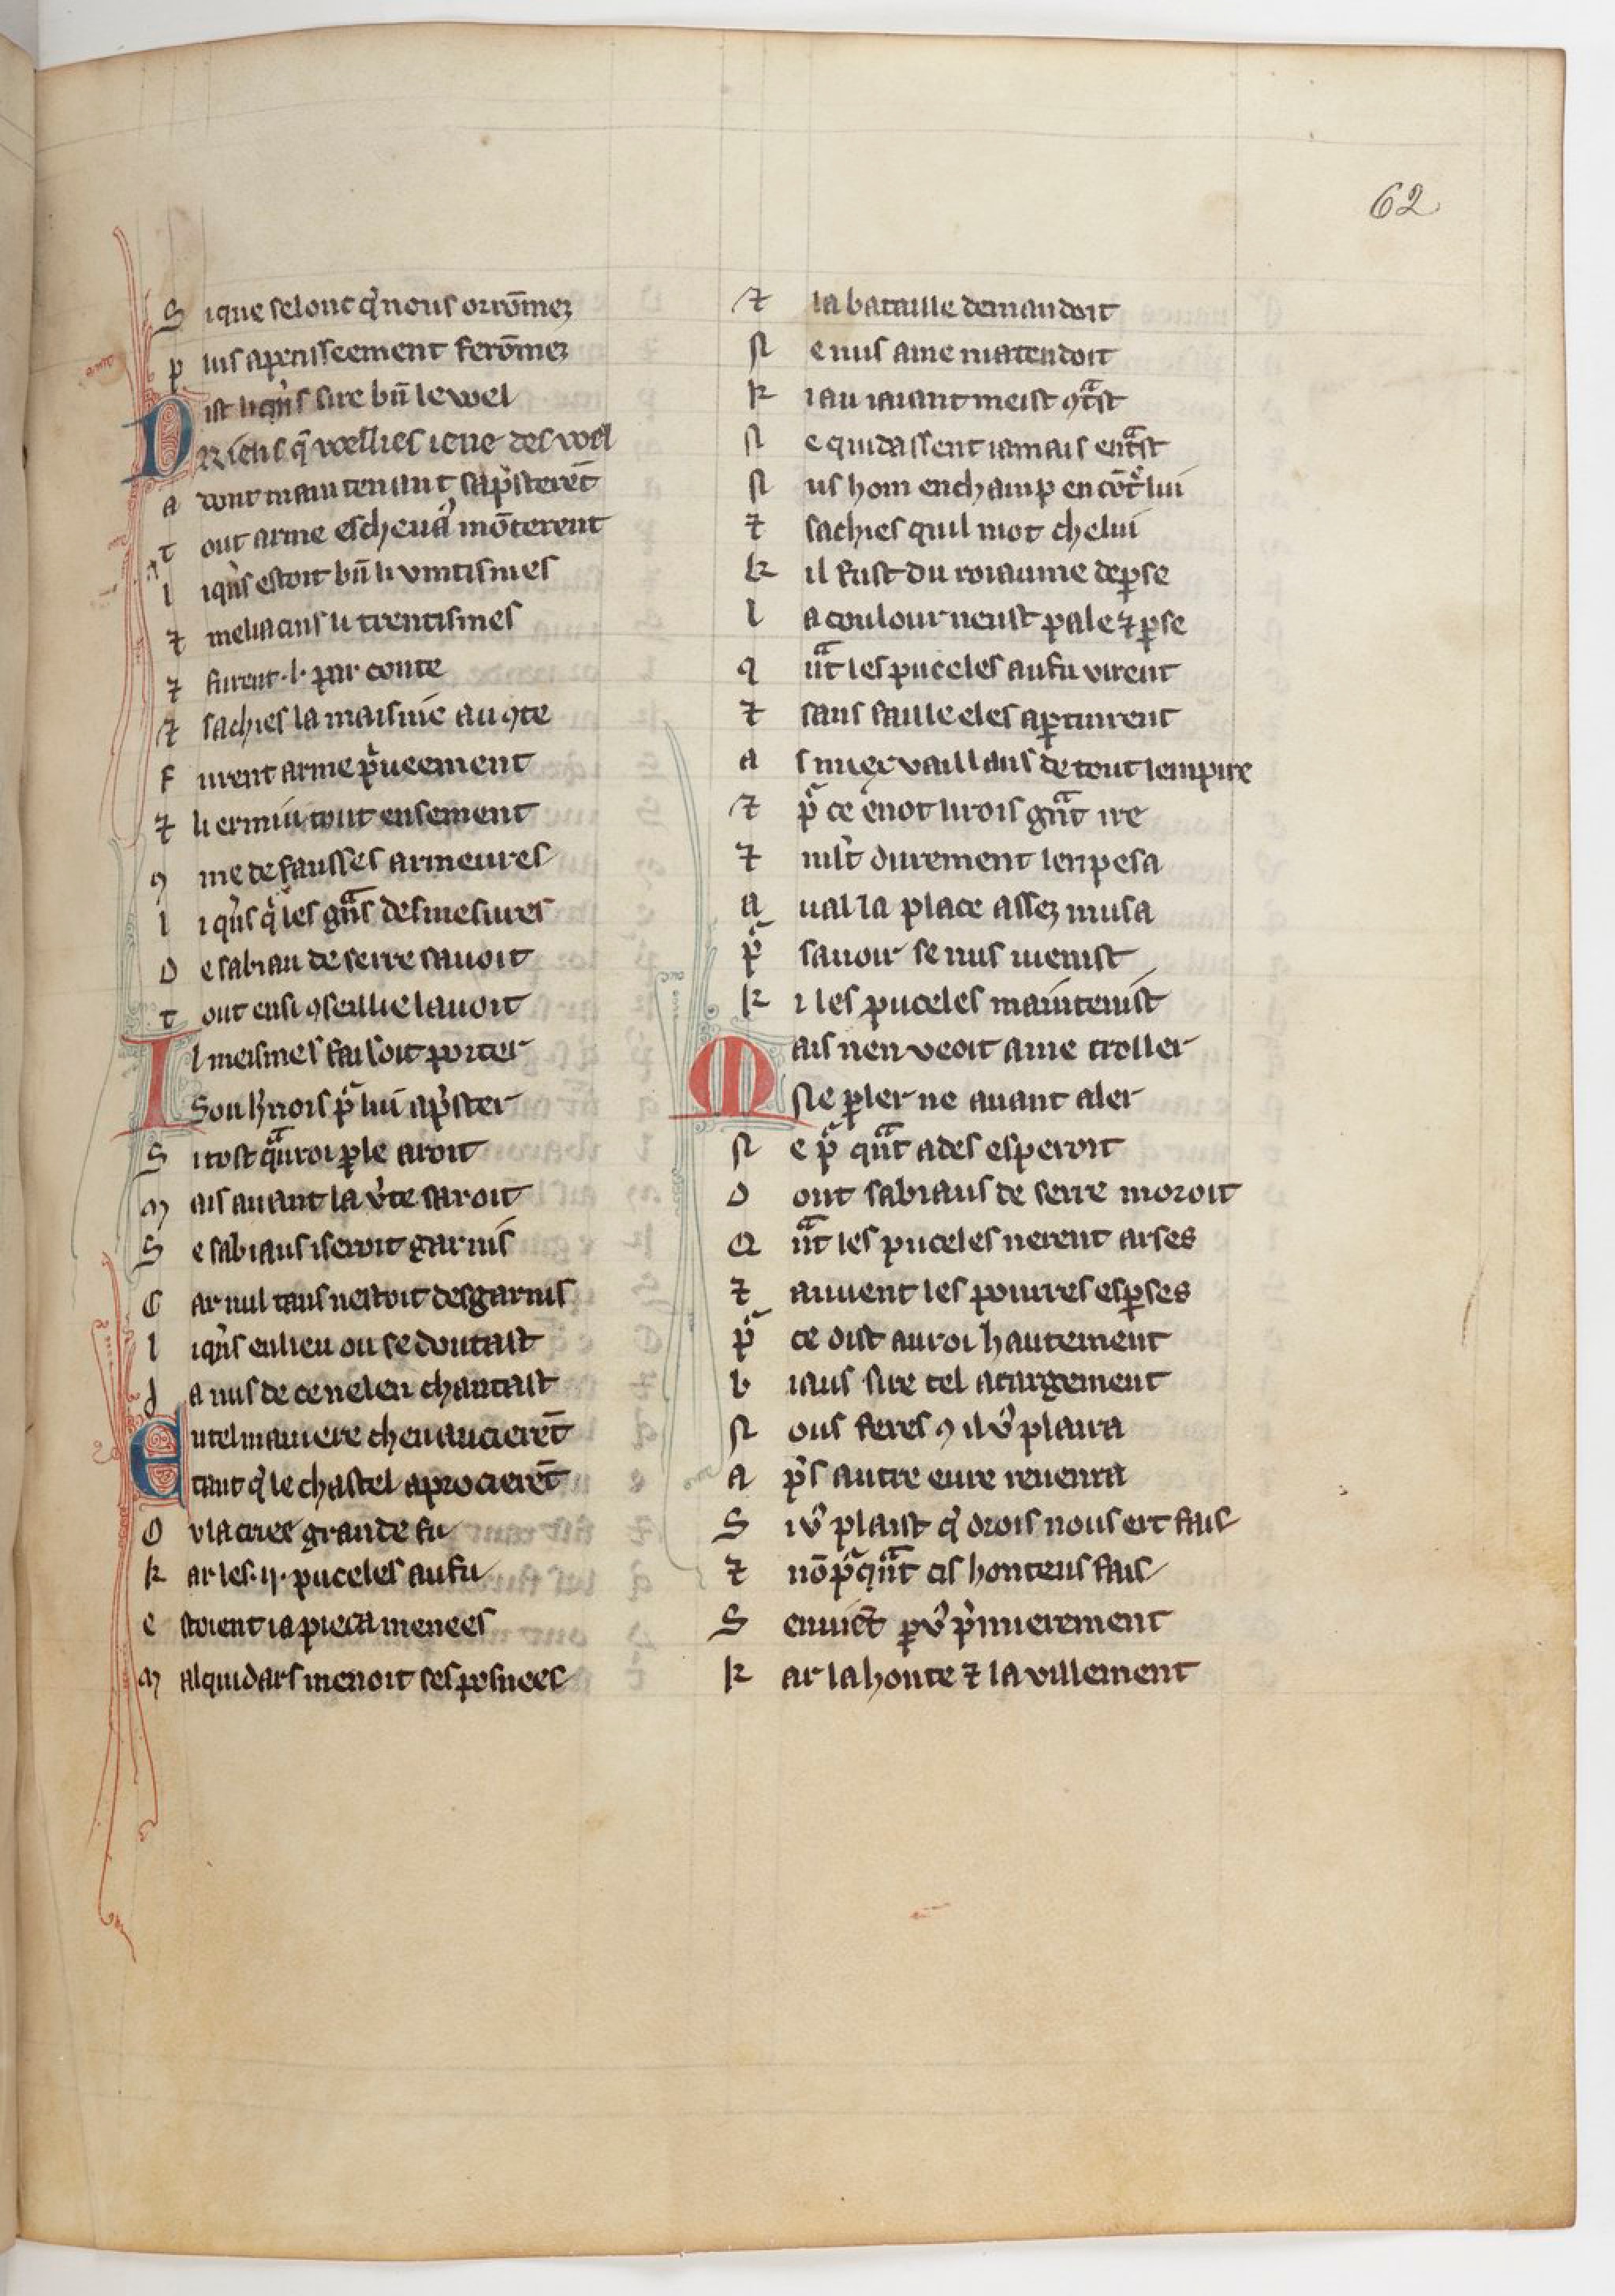 62
S ique selonc q̾ nous orrōmeʒ
p lus apensseement ferōmeʒ
D ist li q̾ns sire bn̄ le wel
Riens q̄ voellies ie ne desvoel
a tont maintenant sap̾sterēt
t out arme es cheuaꝰ mōterent
l i q̾ns estoit bn̄ li vintismes
⁊ meliacins li trentismes
⁊ furent .l. par conte
⁊ sachies la maisnie au ꝯte
f urent arme p̾ueement
⁊ li ermin tout ensement
ꝯ me de fausses armeures
l i q̾ns q̾ les gnᷓs desmesures
D e sabiau de serre sauoit
t out ensi ꝯseillie lauoit
I l meismes faisoit porter
Son h̾nois pͬ lui ap̾ster
S i tost qᷓu roi ꝑle aroit
M ais auant la v̾te saroit
S e sabiaus i seroit garnis
C ar nul tans nestoit desgarnis
l i q̾ns en lieu ou se doutast
J a nus de ce nel en chantast
E n tel maniere cheuaucierēt
tant q̾ le chastel aprocierēt
O v la criee grande fu
k ar les .ij. puceles au fu
e stoient ia pieca menees
M alquidars menoit ses posnees
⁊ la bataille demandoit
N e nus a me natendoit
k i au iauant meist ꝯtᷓst
N e quidassent iamais entᷓst
N us hom en champ en cōtͬ lui
⁊ sachies quil not chelui
k il fust du roiaume de ꝑse
l a coulour neust pale ⁊ ꝑse
q n̄t les puceles au fu virent
⁊ sans faille eles aꝑtinrent
a s miex vaillans de tout lempire
⁊ pͬ ce en ot li rois gnᷓt ire
⁊ ml̾t durement len pesa
a ual la place asseʒ musa
pͬ sauoir se nus i uenist
k i les puceles maintenist
M ais nen veoit ame troller
Ne ꝑler ne auant aler
N e pͬ qᷓnt ades esperoit
D ont sabiaus de serre moroit
Q n̄t les puceles nerent arses
⁊ au uent les pourres esꝑses
pͬ ce dist au roi hautement
b iaus sire tel atargement
N ous feres ꝯ il vꝰ plaira
a p̾s autre eure reuenra
S i vꝰ plaist q̾ drois nous ert fais
⁊ nō pͬqᷓnt cis honteus fais
S en vict̄ ꝑ vꝰ p̾mierement
k ar la honte ⁊ la villement